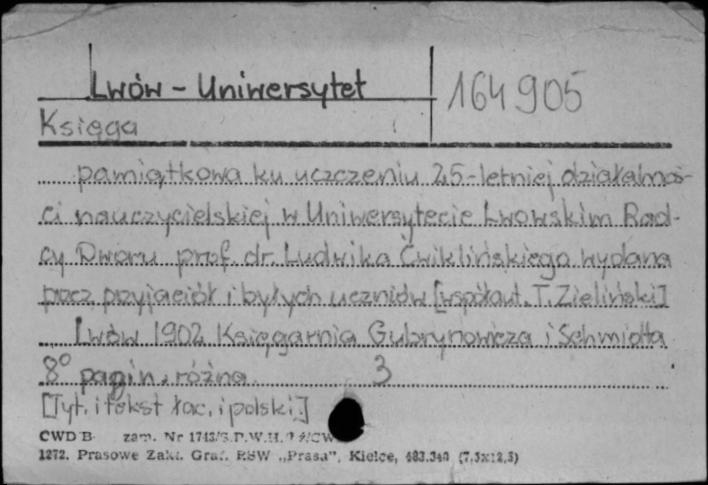 Lwów - Uniwersytet 164905
Księga
pamiątkowa ku uczczeniu 25-letniej działalnoś-
ci nauczycielskiej w Uniwersytecie Lwowskim Rad-
cy Dworu prof. dr. Ludwika Ćwiklińskiego wydana
przez przyjaciół i byłych uczniów [współaut. T. Zieliński]
Lwów 1902 Księgarnia Gubrynowicza i Schmidta
8° pagin. różna 3
[Tyt. i tekst łac. i polski.]
CWD B- zam. Nr
1272. Prasowe Zakł. Graf. RSW „Prasa", Kielce, 483.340 (7,5x12,5)